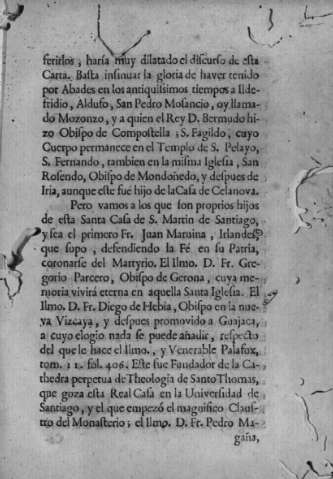 ferirlos, haria muy dilatado el discurso de esta
Carta. Basta insinuar la gloria de haver tenido
por Abades en los antiquissimos tiempos a Ilde-
fridio, Aldufo, San Pedro Mosancio, oy llama-
do Mozonzo, y a quien el Rey D. Bermudo hi-
zo Obispo de Compostella; S. Fagildo, cuyo
Cuerpo permanece en el Templo de S. Pelayo,
S. Fernando, tambien en la misma Iglesia, San
Rosendo, Obispo de Mondoñedo, y despues de
Iria, aunque este fue hijo de la Casa de Celanova.
Pero vamos a los que son proprios hijos
de esta Santa Casa de S. Martin de Santiago,
y sea el primero Fr. Juan Maruina, Irlandes,
que supo, defendiendo la Fé en su Patria,
coronarse del Martyrio. El Ilmo. D. Fr. Gre-
gorio Parcero, Obispo de Gerona, cuya me-
moria vivirá eterna en aquella Santa Iglesia. El
Ilmo. D. Fr. Diego de Hebia, Obispo en la nue-
va Vizcaya, y despues promovido a Guajaca,
a cuyo elogio nada se puede añadir, respecto
del que le hace el Ilmo., y Venerable Palafox,
tom. 11. fol. 406. Este fue Fundador de la Ca-
thedra perpetua de Theologia de Santo Thomas,
que goza esta Real Casa en la Universidad de
Santiago, y el que empezó el magnifico Claus-
tro del Monasterio; el Ilmo. D. Fr. Pedro Ma-
gaña,